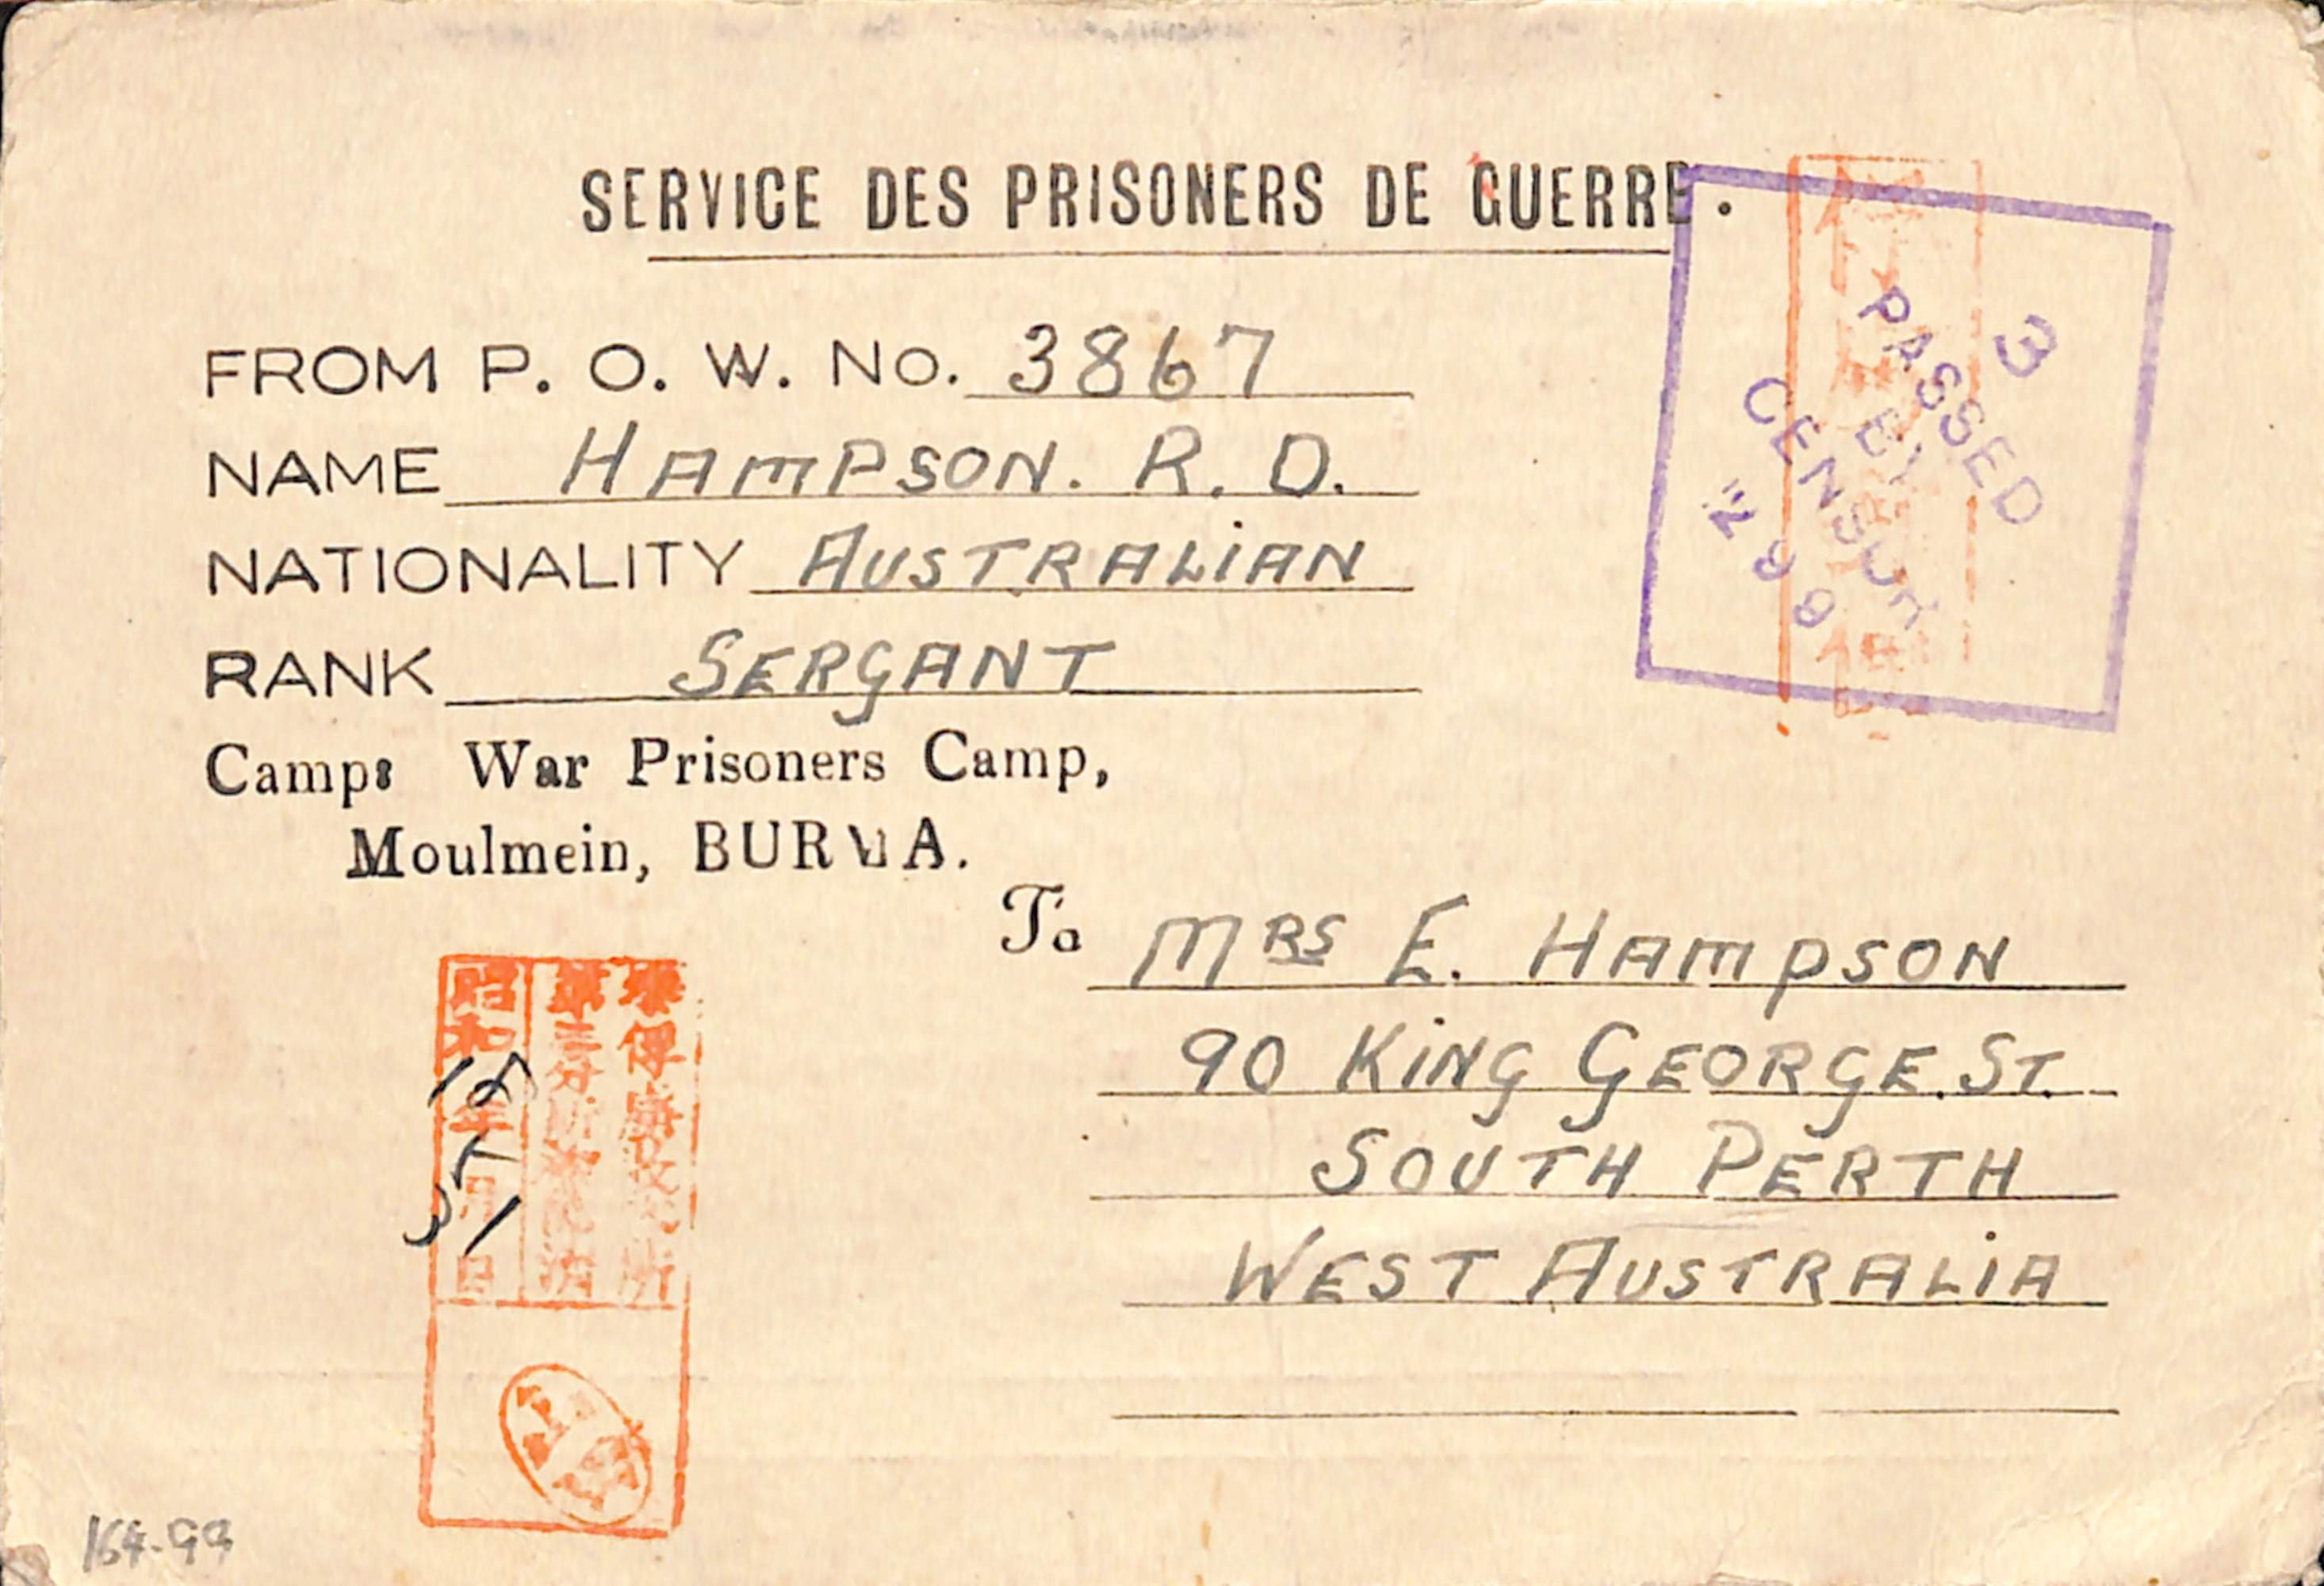 SERVICE DES PRISONERS DE GUERRE.
FROM P. O. W. No. 3867
NAME HAMPSON. R. D.
NATIONALITY AUSTRALIAN
RANK SERGANT
Camp: War Prisoners Camp,
Moulmein, BURMA.
To MRS E. HAMPSON
90 KING GEORGE. ST.
SOUTH PERTH
WEST AUSTRALIA
3
PASSED
BY
CENSOR
泰俘虜収容所
第三分所
昭和18年 月 日
164-99